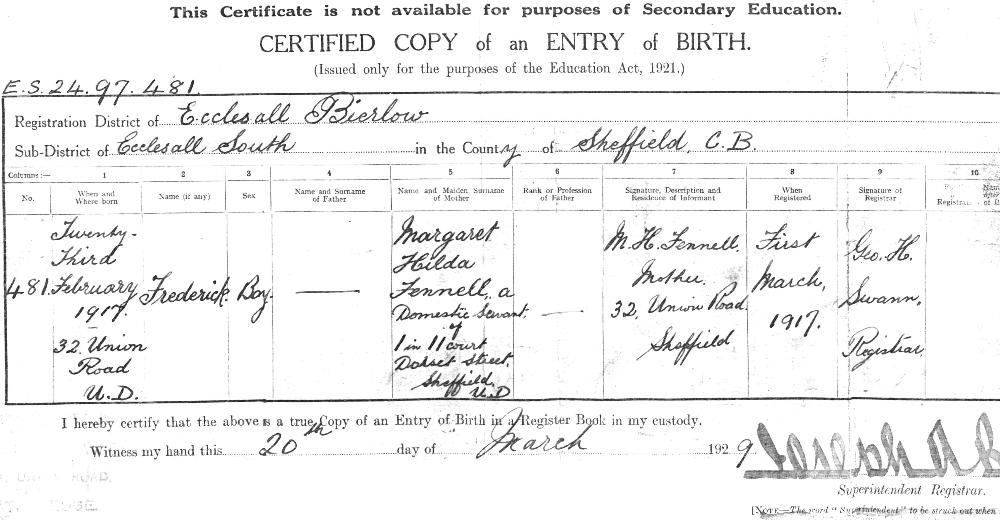 This Certificate is not available for purposes of Secondary Education.
CERTIFIED COPY of an ENTRY of BIRTH.
(Issued only for the purposes of the Education Act, 1921.)
E.S. 24. 97. 481.
Registration District of Ecclesall Bierlow
Sub-District of Ecclesall South in the County of Sheffield, C.B.
Columns:— 1 2 3 4 5 6 7 8 9 10
No. When and Where born Name (if any) Sex Name and Surname of Father Name and Maiden Surname of Mother Rank or Profession of Father Signature, Description and Residence of Informant When Registered Signature of Registrar
481. Twenty-
Third
February
1917.
32. Union
Road
U.D.
Frederick.
Boy.
Margaret
Hilda
Fennell, a
Domestic Servant,
of
1 in 11 court
Dorset Street,
Sheffield,
U.D
M. H. Fennell.
Mother.
32, Union Road.
Sheffield
First
March,
1917.
Geo. H.
Swann,
Registrar.
I hereby certify that the above is a true Copy of an Entry of Birth in a Register Book in my custody.
Witness my hand this 20th day of March 1929.
Joseph A
Superintendent Registrar.
[NOTE—The word "Superintendent" to be struck out when